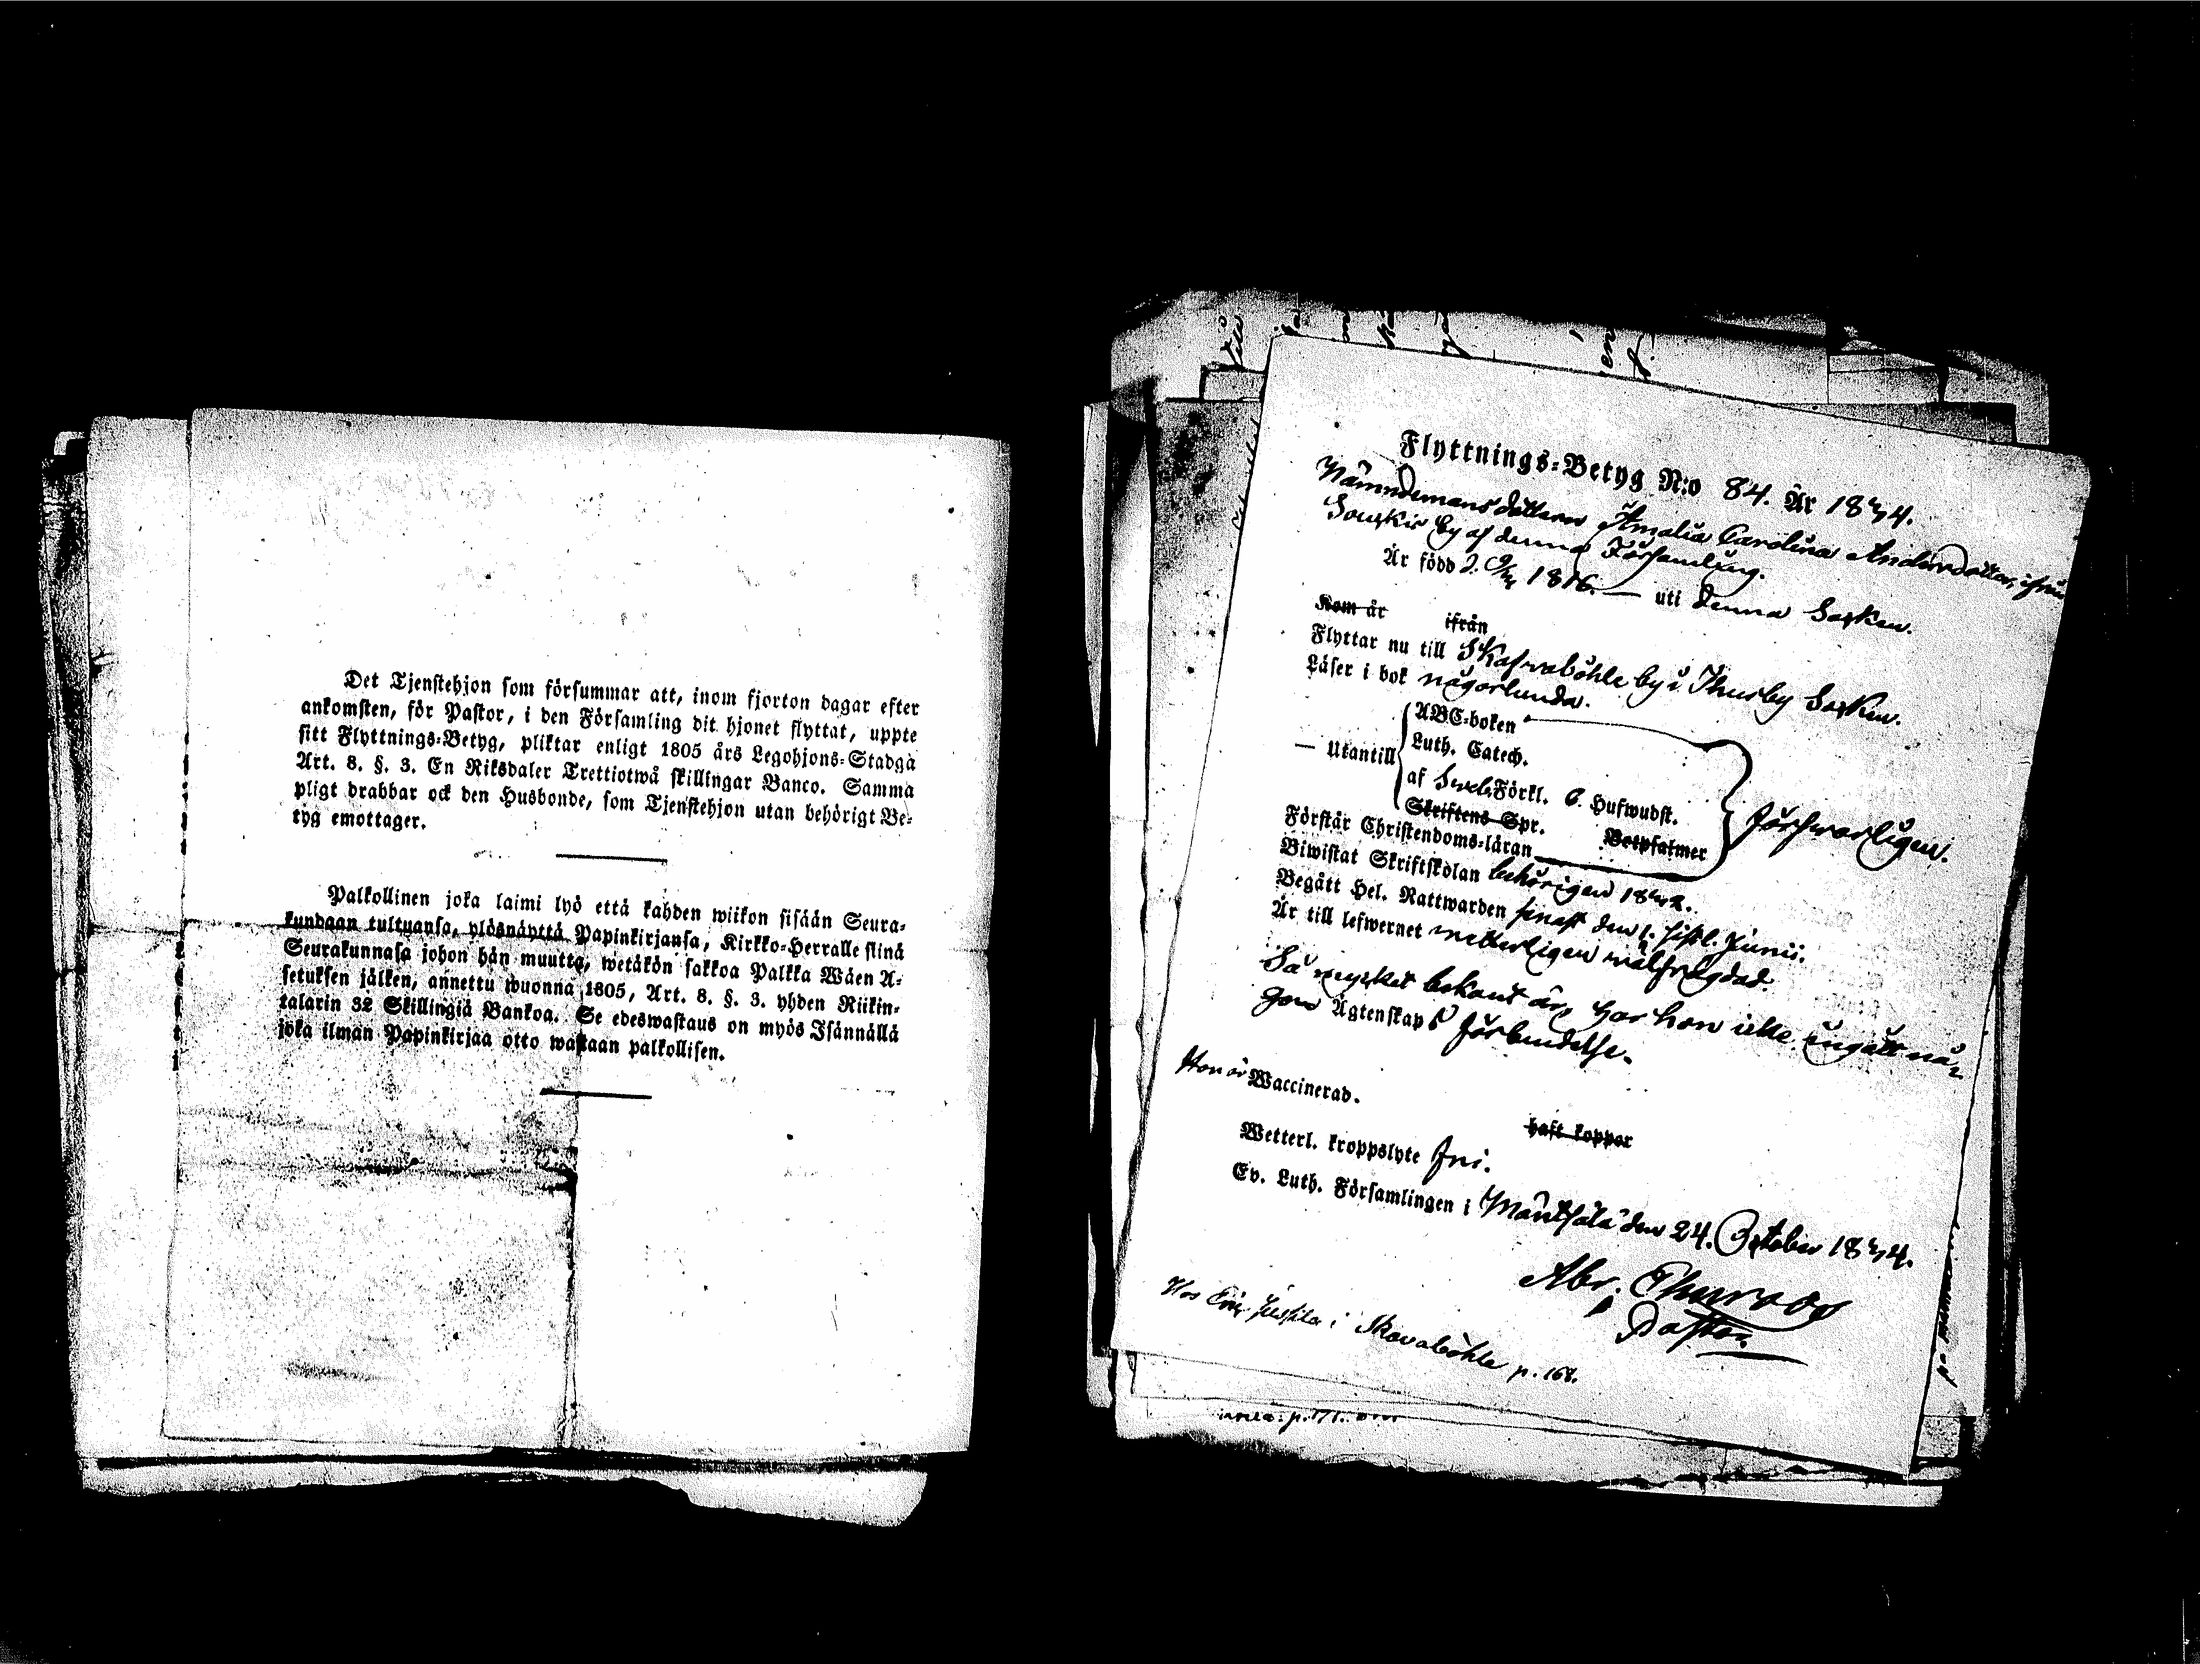 Det Tjenstehjon som försummar att, inom fjorton dagar efter
ankomsten, för Pastor, i den Församling dit hjonet flyttat, uppte
sitt Flyttnings-Betyg, pliktar enligt 1805 års Legohjons-Stadga
Art. 8. §. 3. En Riksdaler Trettiotwå skillingar Banco. Samma
pligt drabbar ock den Husbonde, som Tjenstehjon utan behörigt Be-
tyg emottager.
Palkollinen joka laimi lyö että kahden wiikon sisään Seura-
kundaan tultuansa, ylösnäyttä Papinkirjansa, Kirkko-Herralle siinä
Seurakunnasa johon hän muutta, wetäkön sakkoa Palkka Wäen A-
setuksen jälken, annettu wuonna 1805, Art. 8. §. 3. yhden Riikin-
talarin 32 Skillingiä Bankoa. Se edeswastaus on myös Isännällä
joka ilman Papinkirjaa otto wastaan palkollisen.
Flyttnings-Betyg N:o 84. År 1844.
Nämndemansdottern Amalia Carolina Andersdotter, ifrån
Soukis by af denna Församling.
Är född d. 1816. — uti denna Socken.
Kom år ifrån
Flyttar nu till Skafvaböhle by i Thusby Socken.
Läser i bok någorlunda.
ABC-boken
— Utantill Luth. Catech.
af Förkl. 6. Hufwudst.
Skriftens Spr. Botpsalmer
försvarligen.
Förstår Christendoms-läran
Biwistat Skriftskolan behörigen 1842.
Begått Hel. Nattwarden sinast den 1. sistl. Junii.
Är till lefwernet wetterligen wälfrägdad.
Så mycket bekant är, har hon icke ingått nå-
gon Ägtenskaps förbindelse.
Hon är Waccinerad.
haft koppor
Wetterl. kroppslyte fri.
Ev. Luth. Församlingen i Mäntsälä den 24. October 1844.
Abr.
Pastor.
Hos Jussila i Skavaböhle p. 168.
p. 171.